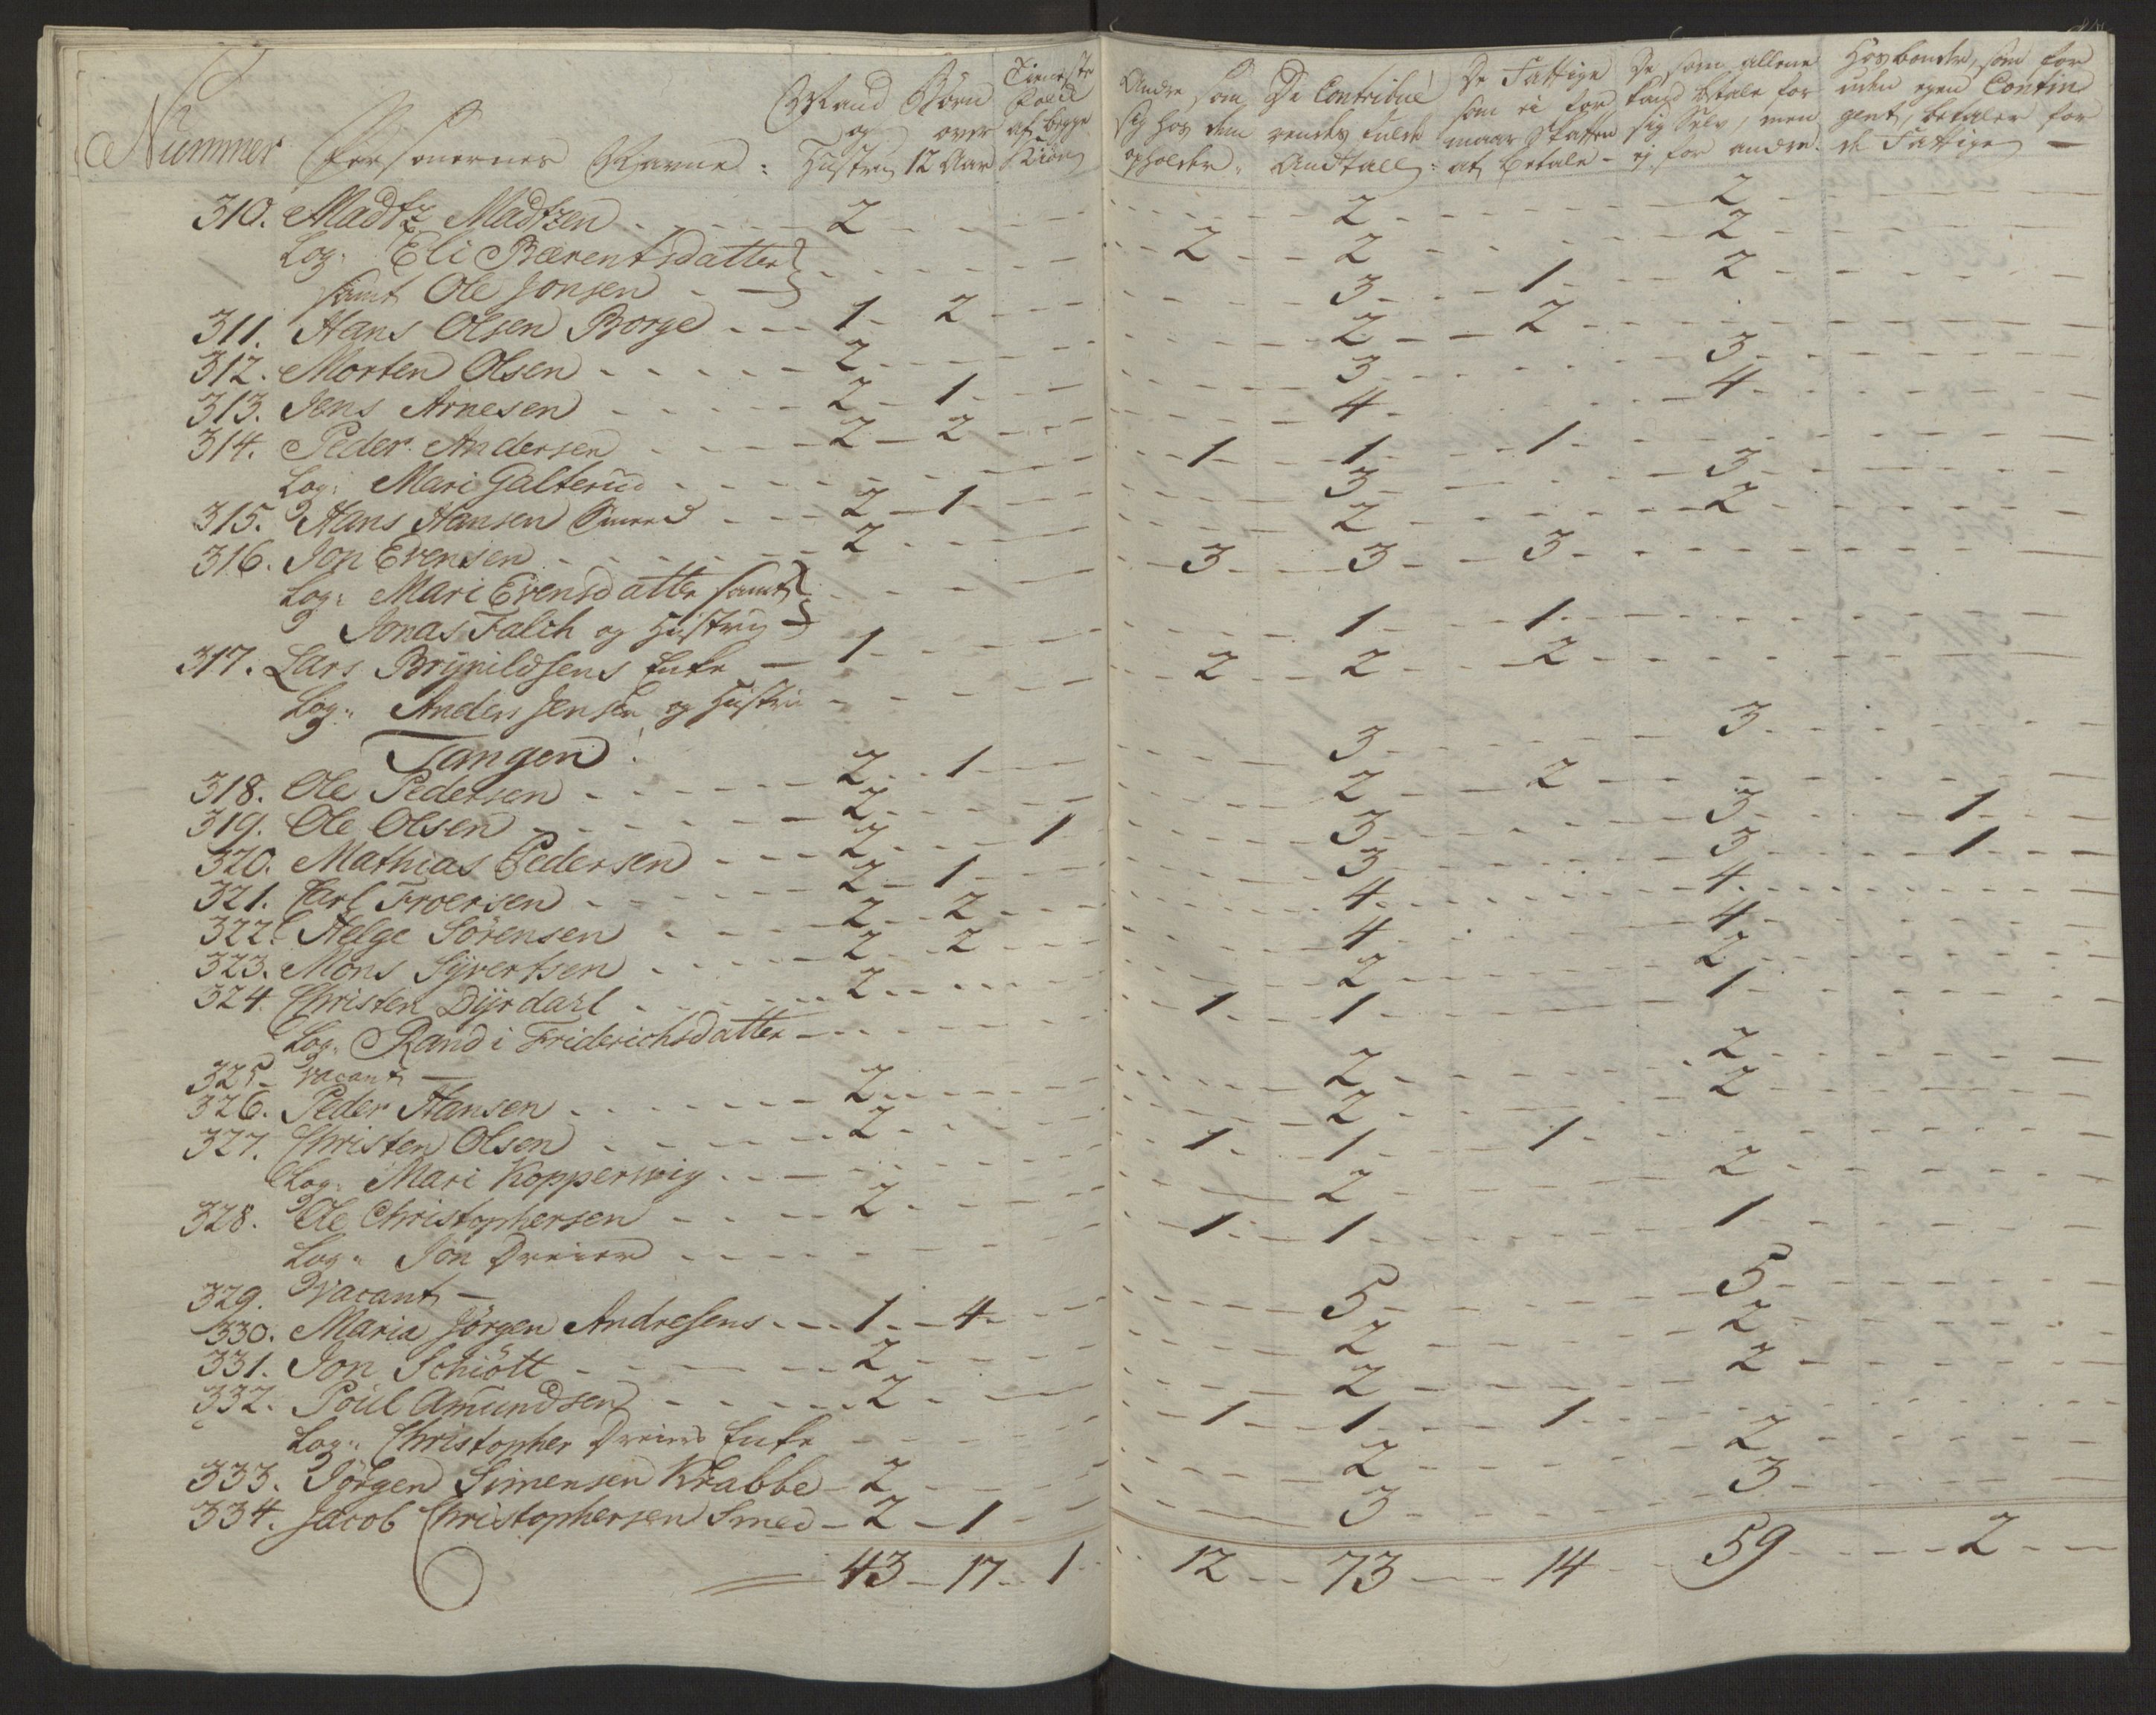 Nummer Persohnernes Navne: Mand og Hustru Börn over 12 Aar Tieneste Folck af begge Kiön Andre som sig hos dem opholder. De Contribuerendes fulde Andtall: De Fattige som ei formaar Skatten at betale - De som allene kand betale for sig Selv, men ej for andre. Hosbonder, som foruden egen Contingent, betaler for de Fattige
310. Madtz Madtzen 2 2 2
Log: Eli Bærentsdatter
samt Ole Jonsen 2 2 2
311. Hans Olsen Borge 1 2 3 1 2
312. Morten Olsen 2 2 2
313. Jens Arnesen 2 1 3 3
314. Peder Andersen 2 2 4 4
Log: Mari Galterud 1 1 1
315. Hans Hansen Smed 2 1 3 3
316. Jon Evensen 2 2 2
Log: Mari Evensdatter samt
Jonas Falch og Hustru 3 3 3
317. Lars Brynildsens Enke 1 1 1
Log: Anders Jensen og Hustru 2 2 2
Tangen
318. Ole Pedersen 2 1 3 3
319. Ole Olsen 2 2 2
320. Mathias Pedersen 2 1 3 3 1
321. Carl Froersen 2 1 3 3 1
322. Helge Sörensen 2 2 4 4
323. Mons Syvertsen 2 2 4 4
324. Christen Dyrdarl 2 2 2
Log: Randi Friderichsdatter 1 1 1
325. vacant
326. Peder Hansen 2 2 2
327. Christen Olsen 2 2 2
Log: Mari Kopperwig 1 1 1
328. Ole Christophersen 2 2 2
Log: Jon Dreier 1 1 1
329. Vacant
330. Maria Jörgen Andresens 1 4 5 5
331. Jon Schiött 2 2 2
332. Poul Amundsen 2 2 2
Log: Christopher Dreiers Enke 1 1 1
333. Jörgen Simensen Krabbe 2 2 2
334. Jacob Christophersen Smed 2 1 3 3
43 17 1 12 73 14 59 2